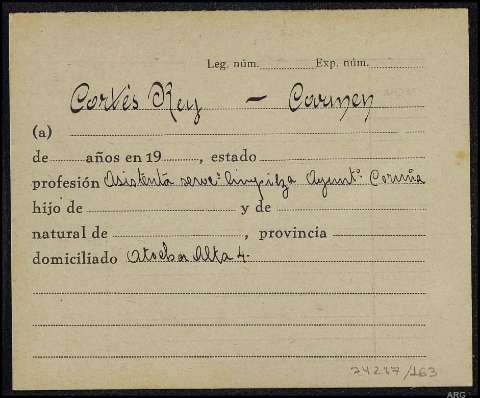 Leg. núm. Exp. núm.
Cortés Rey — Carmen
(a)
de años en 19 , estado
profesión Asistenta servº. limpieza Ayuntº. Coruña
hijo de y de
natural de , provincia
domiciliado Atocha Alta 4.
74247/163
ARG